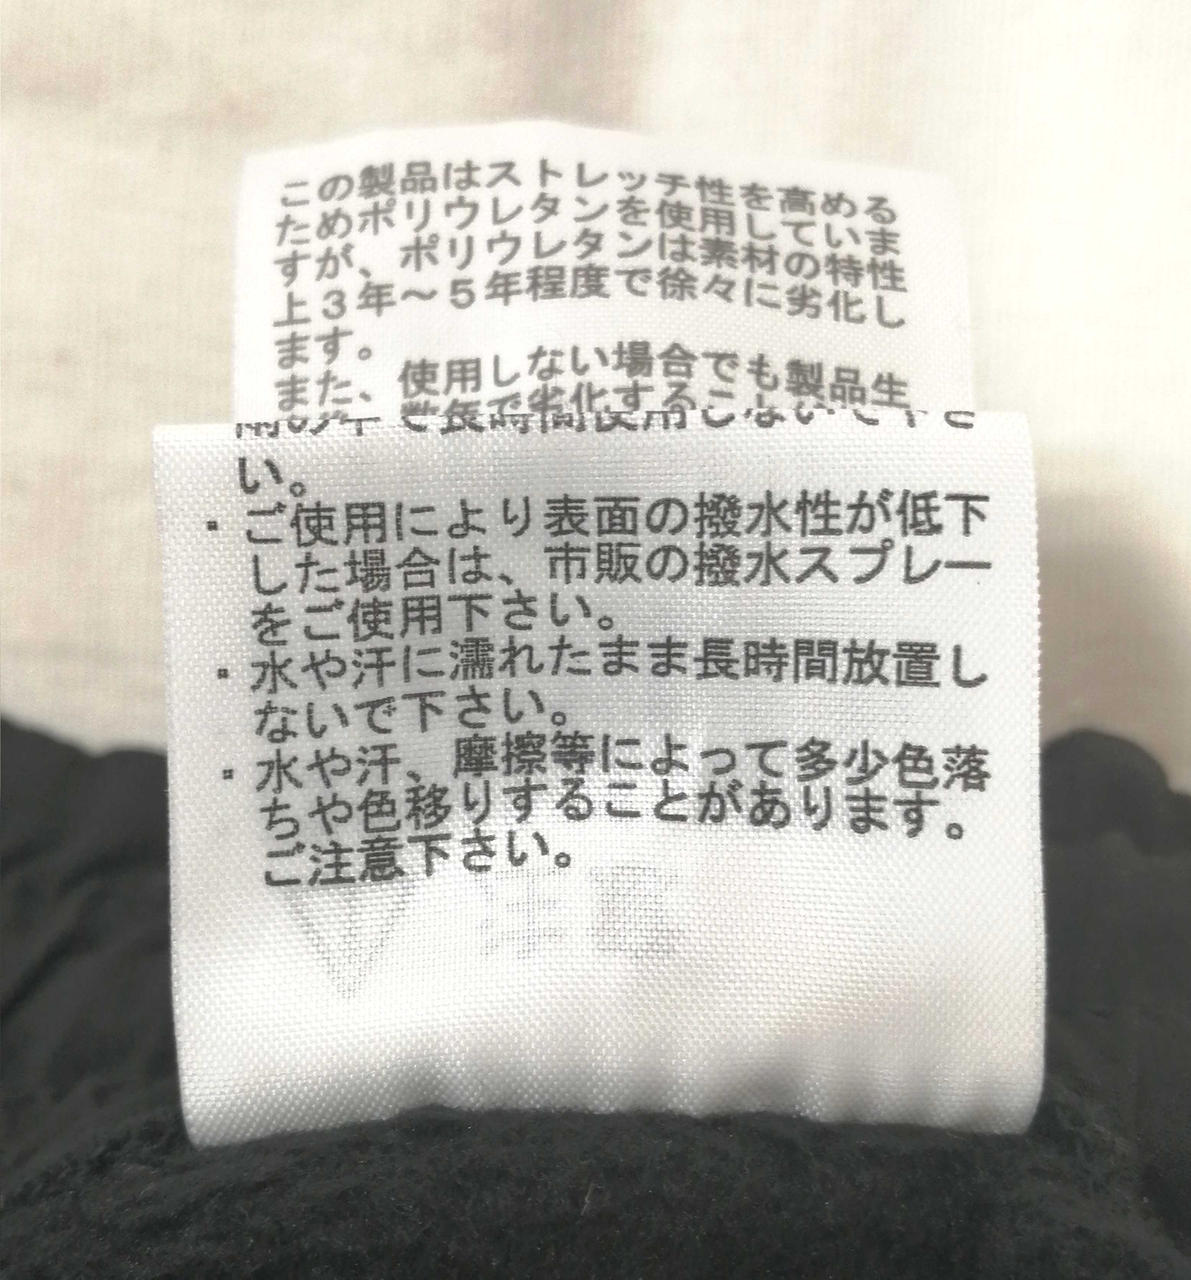 この製品はストレッチ性を高める
ためポリウレタンを使用していま
すが、ポリウレタンは素材の特性
上3年～5年程度で徐々に劣化し
ます。
また、使用しない場合でも製品生
長時間使用しないで下さ
い。
・ご使用により表面の撥水性が低下
した場合は、市販の撥水スプレー
をご使用下さい。
・水や汗に濡れたまま長時間放置し
ないで下さい。
・水や汗、摩擦等によって多少色落
ちや色移りすることがあります。
ご注意下さい。